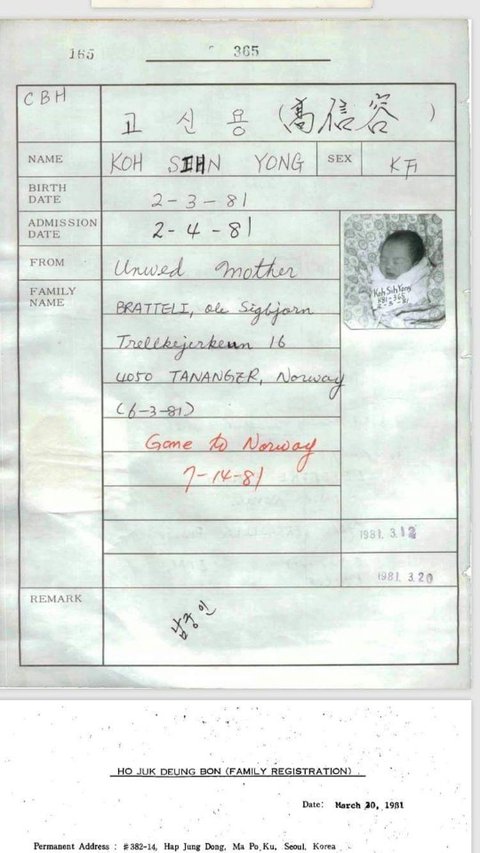 165
365
CBH
고 신 용 (高信容)
NAME KOH SIHN YONG SEX
BIRTH DATE 2-3-81
ADMISSION DATE 2-4-81
FROM Unwed mother
FAMILY NAME
BRATTELI, Ole Sigbjørn
16
4050 TANANGER, Norway
(6-3-81)
Gone to Norway
7-14-81
Koh Sih Yong
1981. 3.12
1981. 3.20
REMARK
HO JUK DEUNG BON (FAMILY REGISTRATION)
Date: March 20, 1981
Permanent Address : #382-14, Hap Jung Dong, Ma Po Ku, Seoul, Korea